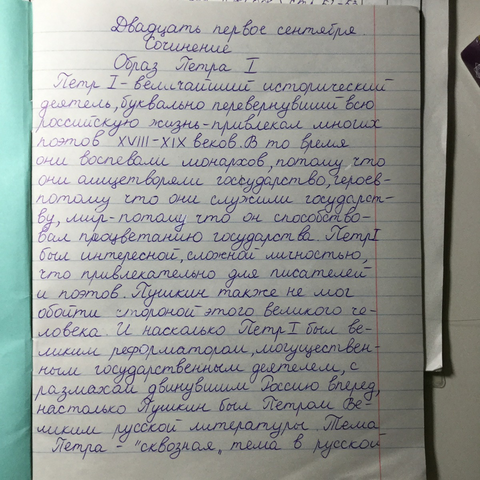 Двадцать первое сентября.
Сочинение
Образ Петра I
Петр I - величайший исторический
деятель, буквально перевернувший всю
российскую жизнь - привлекал многих
поэтов XVIII-XIX веков. В то время
они воспевали монархов, потому что
они олицетворяли государство, героев -
потому что они служили государст-
ву, мир - потому что он способство-
вал процветанию государства. Петр I
был интересной, сложной личностью,
что привлекательно для писателей
и поэтов. Пушкин также не мог
обойти стороной этого великого че-
ловека. И насколько Петр I был ве-
ликим реформатором, могуществен-
ным государственным деятелем, с
размахом двинувшим Россию вперед,
настолько Пушкин был Петром Ве-
ликим русской литературы. Тема
Петра - "сквозная" тема в русской